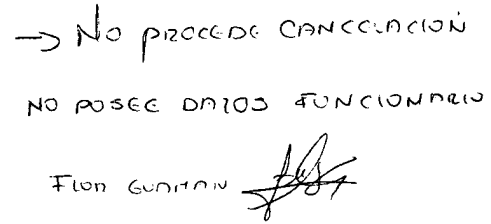 → No PROCEDE CANCELACIÓN
NO POSEE DATOS FUNCIONARIO
FLOR GUAMAN